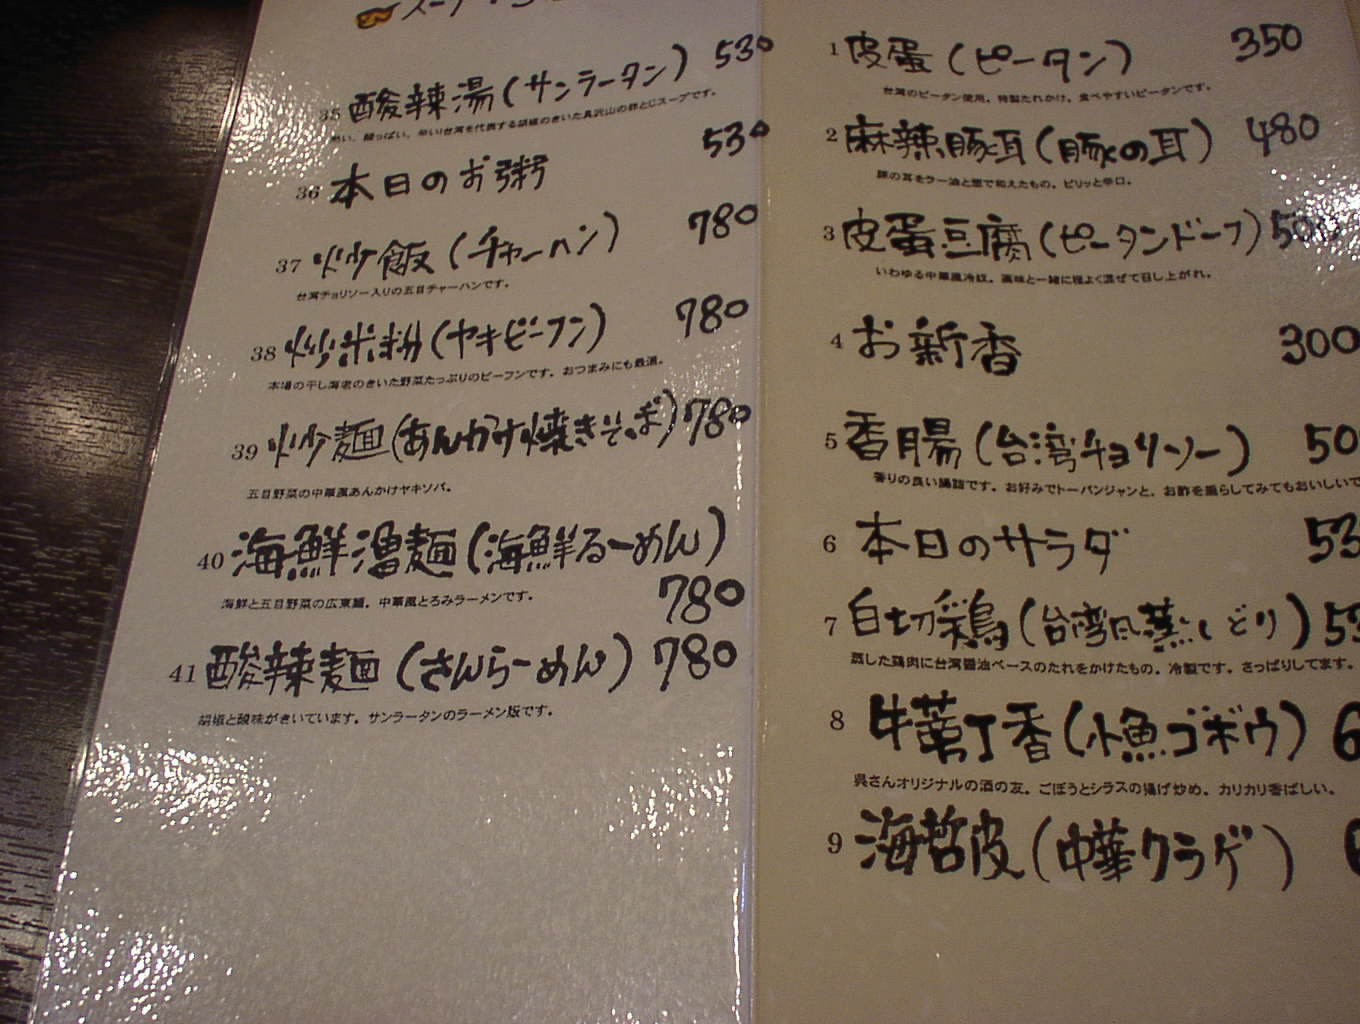 スープ
35 酸辣湯(サンラータン) 530
熱い、酸っぱい、辛い!台湾を代表する胡椒のきいた具沢山の卵とじスープです。
36 本日のお粥 530
37 炒飯(チャーハン) 780
台湾チョリソー入りの五目チャーハンです。
38 炒米粉(ヤキビーフン) 780
本場の干し海老のきいた野菜たっぷりのビーフンです。おつまみにも最適。
39 炒麺(あんかけ焼きそば) 780
五目野菜の中華風あんかけヤキソバ。
40 海鮮湯麺(海鮮らーめん)
780
海鮮と五目野菜の広東麺。中華風とろみラーメンです。
41 酸辣麺(さんらーめん) 780
胡椒と酸味がきいています。サンラータンのラーメン版です。
1 皮蛋(ピータン) 350
台湾のピータン使用。特製たれかけ。食べやすいピータンです。
2 麻辣豚耳(豚の耳) 480
豚の耳をラー油と葱で和えたもの。ピリッと辛口。
3 皮蛋豆腐(ピータンドーフ) 500
いわゆる中華風冷奴。薬味と一緒に程よく混ぜて召し上がれ。
4 お新香 300
5 香腸(台湾チョリソー) 50
香りの良い腸詰です。お好みでトーバンジャンと、お酢を垂らしてみてもおいしいで
6 本日のサラダ 53
7 白切鶏(台湾風蒸しどり) 53
蒸した鶏肉に台湾醤油ベースのたれをかけたもの。冷製です。さっぱりしてます。
8 牛蒡丁香(小魚ゴボウ) 6
呉さんオリジナルの酒の友。ごぼうとシラスの揚げ炒め。カリカリ香ばしい。
9 海哲皮(中華クラゲ) 6